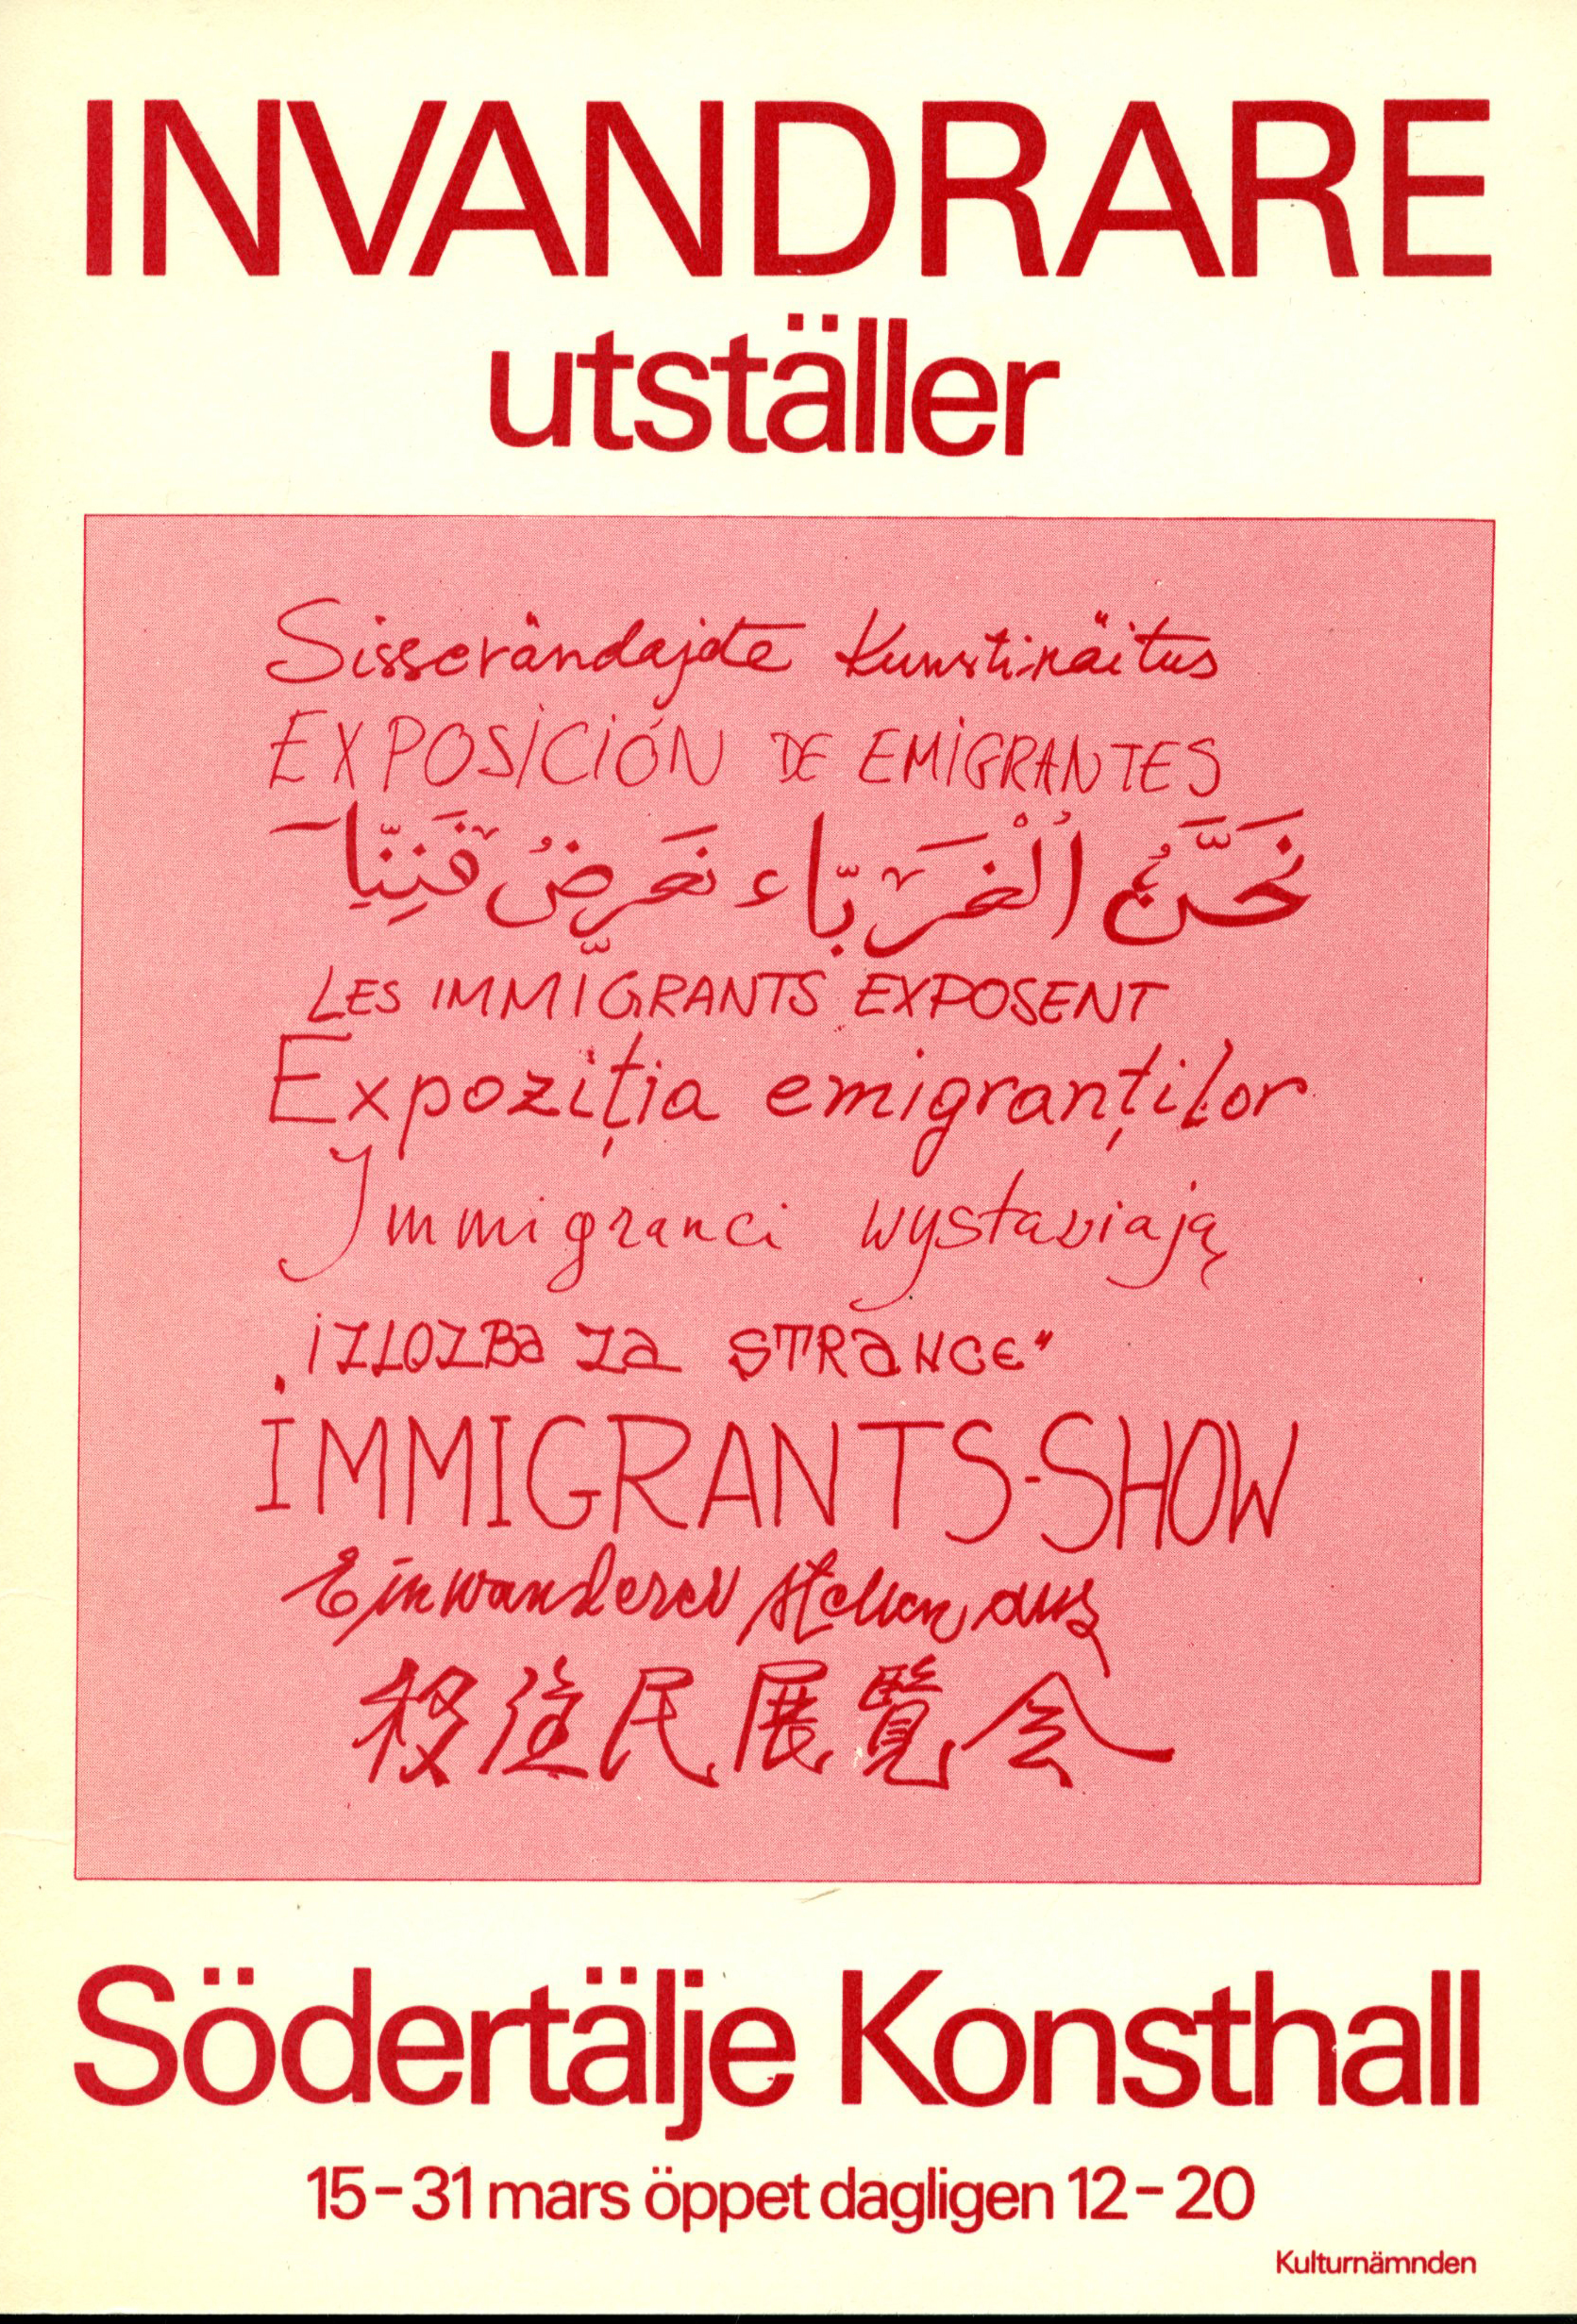 INVANDRARE
utställer
Sisserändajate Kunstinäitus
EXPOSICIÓN DE EMIGRANTES
نَحَنُ اُلْغَرَبّاء نَعَرِضُ فَنِنَّا
LES IMMIGRANTS EXPOSENT
Expoziția emigranților
Immigranci wystawiają
„IZLOZBA ZA STRANCE“
IMMIGRANTS-SHOW
Einwanderer stellen aus
移住民展覧会
Södertälje Konsthall
15–31 mars öppet dagligen 12–20
Kulturnämnden